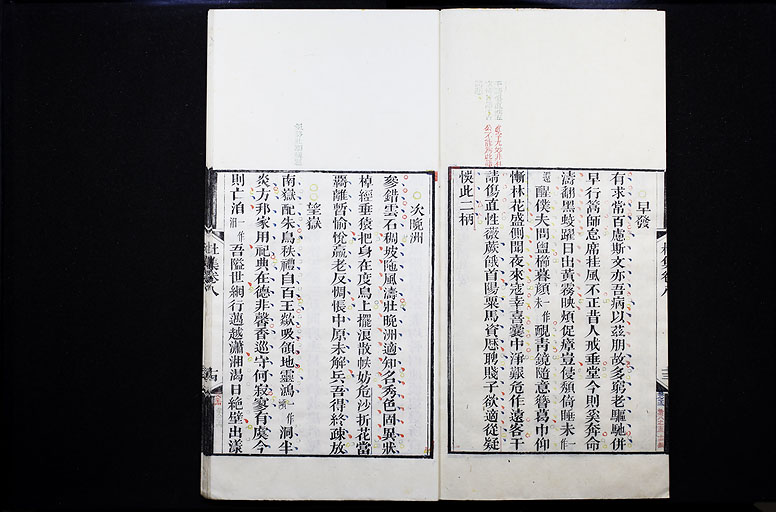 早發
有求常百慮斯文亦吾病以茲朋故多窮老驅馳併
早行篙師怠席挂風不正昔人戒垂堂今則奚奔命
濤翻黑蛟躍日出黃霧映煩促瘴豈侵頹倚睡未一作
還醒僕夫問盥櫛暮顏未一作靦青鏡隨意簪葛巾仰
慚林花盛側聞夜來寇幸喜囊中淨艱危作遠客干
請傷直性薇蕨餓首陽粟馬資歷聘賤子欲適從疑
悞此二柄
次晚洲
參錯雲石稠坡陁風濤壯晚洲適知名秀色固異狀
棹經垂猿把身在度鳥上擺浪散帙妨危沙折花當
羇離暫愉悅羸老反惆悵中原未解兵吾得終疎放
望嶽
南嶽配朱鳥秩禮自百王歘吸領地靈鴻一作澒洞半
炎方邦家用祀典在德非馨香巡守何寂寥有虞今
則亡洎一作汨吾隘世網行邁越瀟湘渴日絕壁出漾
杜集卷八